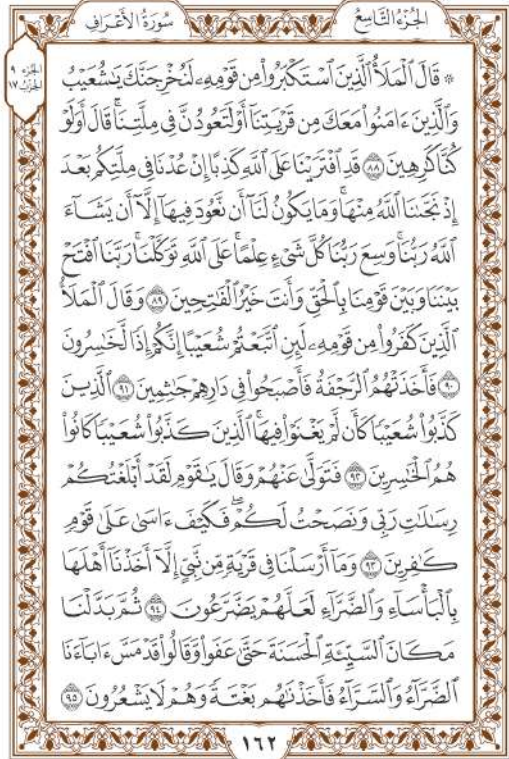 الجزء التاسع
سورة الأعراف
الجزء ٩
الحزب ١٧
۞ قَالَ ٱلْمَلَأُ ٱلَّذِينَ ٱسْتَكْبَرُوا۟ مِن قَوْمِهِۦ لَنُخْرِجَنَّكَ يَـٰشُعَيْبُ
وَٱلَّذِينَ ءَامَنُوا۟ مَعَكَ مِن قَرْيَتِنَآ أَوْ لَتَعُودُنَّ فِى مِلَّتِنَا ۚ قَالَ أَوَلَوْ
كُنَّا كَـٰرِهِينَ ٨٨ قَدِ ٱفْتَرَيْنَا عَلَى ٱللَّهِ كَذِبًا إِنْ عُدْنَا فِى مِلَّتِكُم بَعْدَ
إِذْ نَجَّىٰنَا ٱللَّهُ مِنْهَا ۚ وَمَا يَكُونُ لَنَآ أَن نَّعُودَ فِيهَآ إِلَّآ أَن يَشَآءَ
ٱللَّهُ رَبُّنَا ۚ وَسِعَ رَبُّنَا كُلَّ شَىْءٍ عِلْمًا ۚ عَلَى ٱللَّهِ تَوَكَّلْنَا ۚ رَبَّنَا ٱفْتَحْ
بَيْنَنَا وَبَيْنَ قَوْمِنَا بِٱلْحَقِّ وَأَنتَ خَيْرُ ٱلْفَـٰتِحِينَ ٨٩ وَقَالَ ٱلْمَلَأُ
ٱلَّذِينَ كَفَرُوا۟ مِن قَوْمِهِۦ لَئِنِ ٱتَّبَعْتُمْ شُعَيْبًا إِنَّكُمْ إِذًا لَّخَـٰسِرُونَ
٩٠ فَأَخَذَتْهُمُ ٱلرَّجْفَةُ فَأَصْبَحُوا۟ فِى دَارِهِمْ جَـٰثِمِينَ ٩١ ٱلَّذِينَ
كَذَّبُوا۟ شُعَيْبًا كَأَن لَّمْ يَغْنَوْا۟ فِيهَا ۚ ٱلَّذِينَ كَذَّبُوا۟ شُعَيْبًا كَانُوا۟
هُمُ ٱلْخَـٰسِرِينَ ٩٢ فَتَوَلَّىٰ عَنْهُمْ وَقَالَ يَـٰقَوْمِ لَقَدْ أَبْلَغْتُكُمْ
رِسَـٰلَـٰتِ رَبِّى وَنَصَحْتُ لَكُمْ ۖ فَكَيْفَ ءَاسَىٰ عَلَىٰ قَوْمٍ
كَـٰفِرِينَ ٩٣ وَمَآ أَرْسَلْنَا فِى قَرْيَةٍ مِّن نَّبِىٍّ إِلَّآ أَخَذْنَآ أَهْلَهَا
بِٱلْبَأْسَآءِ وَٱلضَّرَّآءِ لَعَلَّهُمْ يَضَّرَّعُونَ ٩٤ ثُمَّ بَدَّلْنَا
مَكَانَ ٱلسَّيِّئَةِ ٱلْحَسَنَةَ حَتَّىٰ عَفَوا۟ وَّقَالُوا۟ قَدْ مَسَّ ءَابَآءَنَا
ٱلضَّرَّآءُ وَٱلسَّرَّآءُ فَأَخَذْنَـٰهُم بَغْتَةً وَهُمْ لَا يَشْعُرُونَ ٩٥
١٦٢